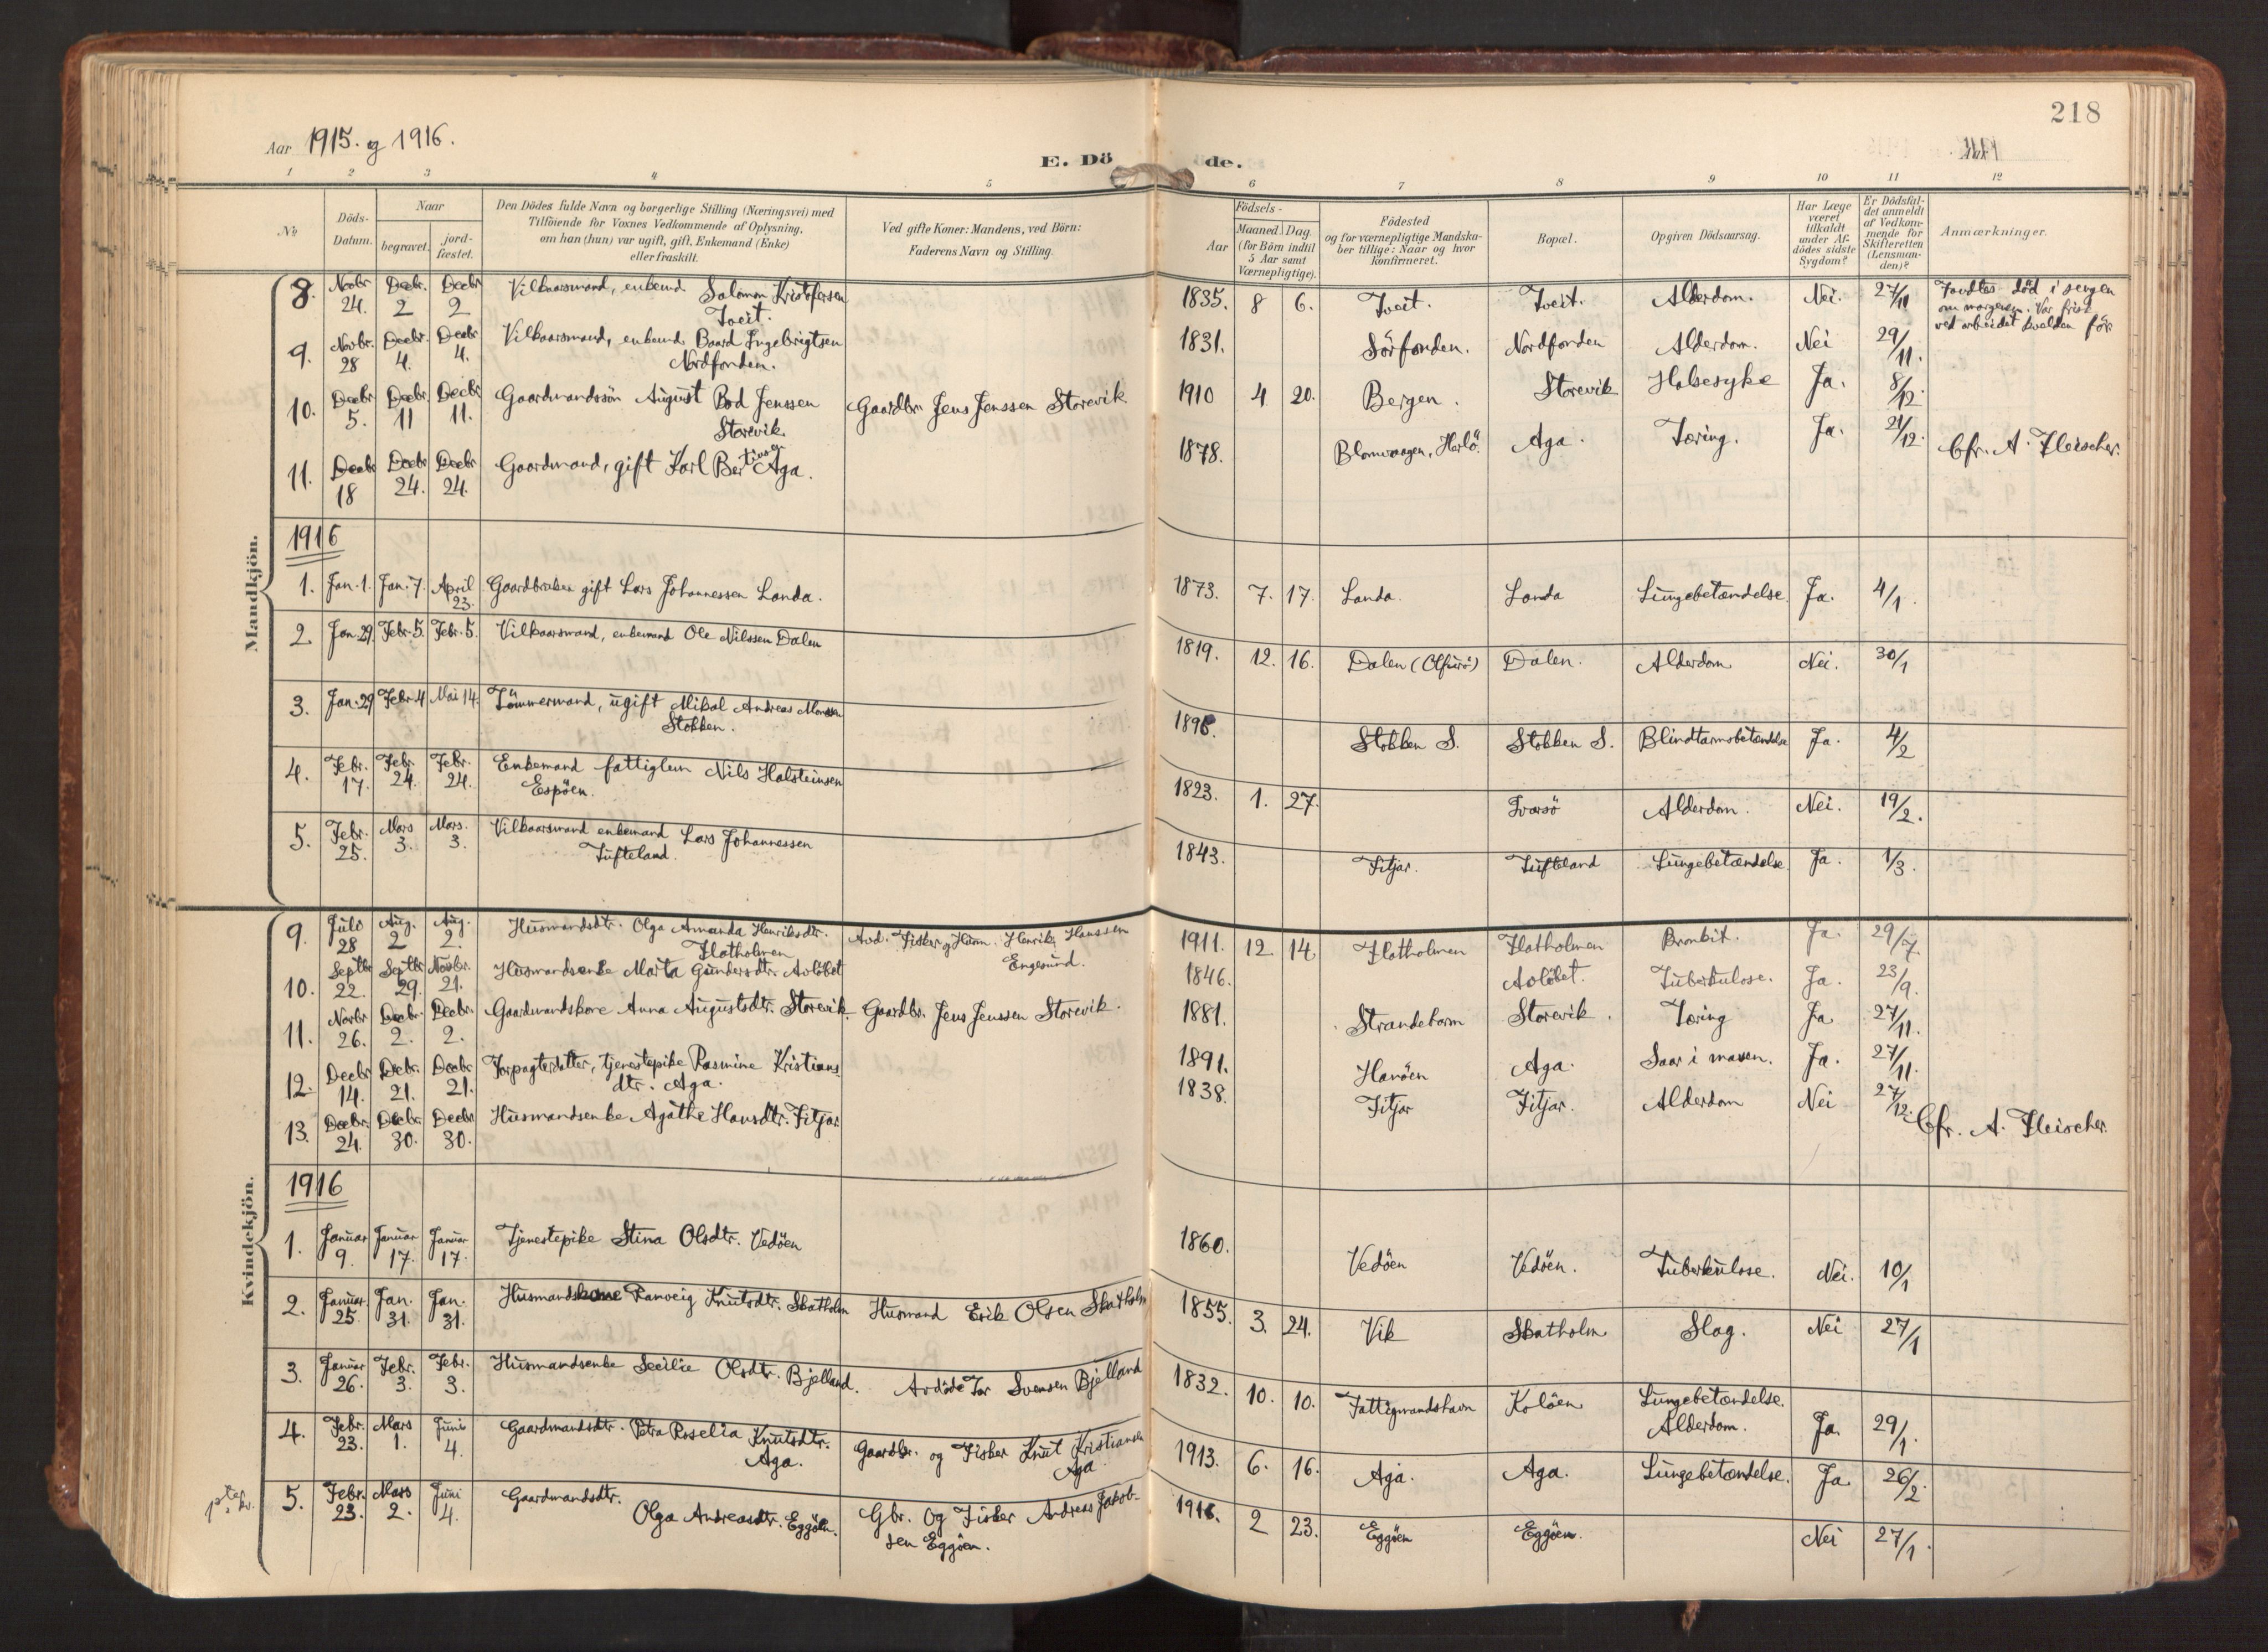 218
Aar 1915. og 1916.
E. Döde.
1 2 3 4 5 6 7 8 9 10 11 12
No
Döds-Datum.
Naar
begravet.
jord-fæstet.
Den Dödes fulde Navn og borgerlige Stilling (Næringsvei) med
Tilföiende for Voxnes Vedkommende af Oplysning,
om han (hun) var ugift, gift, Enkemand (Enke)
eller fraskilt.
Ved gifte Koner: Mandens, ved Börn:
Faderens Navn og Stilling.
Födsels-
Aar
Maaned. Dag.
(for Börn indtil
5 Aar samt
Værnepligtige).
Födested
og for værnepligtige Mandska-
ber tillige: Naar og hvor
Konfirmeret.
Bopæl.
Opgiven Dödsaarsag.
Har Læge
været
tilkaldt
under Af-
dödes sidste
Sygdom?
Er Dödsfal-
det anmeldt
af Vedkom-
mende for
Skifteretten
(Lensman-
den)?
Anmærkninger.
Mandkjön.
8. Novbr. 24. Decbr. 2 Decbr. 2 Vilkaarsmand, enkemd. Salomon Kristofersen Tveit. 1835. 8 6. Tveit. Tveit. Alderdom. Nei. 27/11 Fandtes död i sengen om morgenen. Var frisk ved arbeidet kvelden før.
9. Novbr. 28 Decbr. 4. Decbr. 4. Vilkaarsmand, enkemd. Baard Ingebrigtsen Nordfonden. 1831. Sörfonden. Nordfonden Alderdom. Nei 29/11.
10. Decbr. 5. Decbr. 11 Decbr. 11. Gaardmandssön August Bod Jenssen Storevik. Gaardbr. Jens Jenssen Storevik 1910 4 20. Bergen. Storevik Halsesyke Ja. 8/12.
11. Decbr. 18 Decbr. 24. Decbr. 24. Gaardmand, gift Karl Bertinsen Aga. 1878. Blomvaagen, Herlö. Aga. Tæring. Ja. 21/12. Chr. A. Fleischer.
1916
1. Jan. 1. Jan. 7. April 23. Gaardbruker gift Lars Johannessen Landa. 1873. 7. 17. Landa. Landa Lungebetændelse. Ja. 4/1.
2. Jan. 29. Febr. 5. Febr. 5. Vilkaarsmand, enkemand Ole Nilssen Dalen 1819. 12. 16. Dalen Dalen. Alderdom Nei. 30/1
3. Jan. 29 Febr. 4 Mai 14. Tömmermand, ugift Mikal Andreas Monssen Stokken. Stokken S. Stokken S. Blindtarmsbetændelse Ja. 4/2
4. Febr. 17. Febr. 24. Febr. 24. Enkemand fattiglem Nils Halsteinsen Espöen. 1823. 1. 27. Ivarsö Alderdom. Nei. 19/2.
5. Febr. 25. Mars 3. Mars. 3. Vilkaarsmand enkemand Lars Johannessen Tufteland. 1843. Fitjar. Tufteland Lungebetændelse. Ja. 1/3.
Kvindekjön.
9. Juli 28 Aug. 2 Aug. 2. Husmandsdtr. Olga Amanda Henriksdtr. Flatholmen Fisker og Husm. Henrik Hanssen Engesund. 1911. 12. 14. Flatholmen Flatholmen Bronkit. Ja. 29/7.
10. Septbr. 22. Septbr. 29. Novbr. 21. Husmandsenke Marta Gundersdtr. Aolöbet 1846. Aolöbet. Tuberkulose. Ja. 23/9.
11. Novbr. 26. Decbr. 2. Decbr. 2. Gaardmandskone Anna Augustsdtr. Storevik. Gaardbr. Jens Jenssen Storevik. 1881. Strandebarm Storevik. Tæring Ja 27/11.
12. Decbr. 14. Decbr. 21. Decbr. 21. Forpagterdatter, tjenestepike Rasmine Kristiansdtr. Aga. 1891. Hanöen Aga. Saar i maven. Ja. 27/11.
13. Decbr. 24. Decbr. 30. Decbr. 30. Husmandsenke Agathe Hansdtr. Fitjar 1838. Fitjar Fitjar. Alderdom Nei 27/12. Chr. A. Fleischer.
1916
1. Januar 9. Januar 17. Januar 17. Tjenestepike Stina Olsdtr. Vedöen 1860. Vedöen Vedöen. Tuberkulose. Nei. 10/1
2. Januar 25. Jan. 31. Jan. 31. Husmandskone Ranveig Knutsdtr. Skatholm Husmand Erik Olsen Skatholm 1855. 3. 24. Vik Skatholm Slag. Nei 27/1
3. Januar 26. Febr. 3. Febr. 3. Husmandsenke Secilie Olsdtr. Bjelland. Avdöde Tor Svensen Bjelland 1832. 10. 10. Fattigmandshavn Kolöen Lungebetændelse. Alderdom. Ja. 29/1.
4. Febr. 23. Mars 1. Juni 4. Gaardmandsdtr. Petra Roselia Knutsdtr. Aga. Gaardbr. og Fisker Knut Kristiansen Aga 1913. 6. 16. Aga. Aga. Lungebetændelse. Ja. 26/2.
5. Febr. 23. Mars 2. Juni 4. Gaardmandsdtr. Olga Andreasdtr. Eggöen. Gbr. og Fisker Andreas Jakobsen Eggöen. 2 23. Eggöen Eggöen. Nei 27/1.